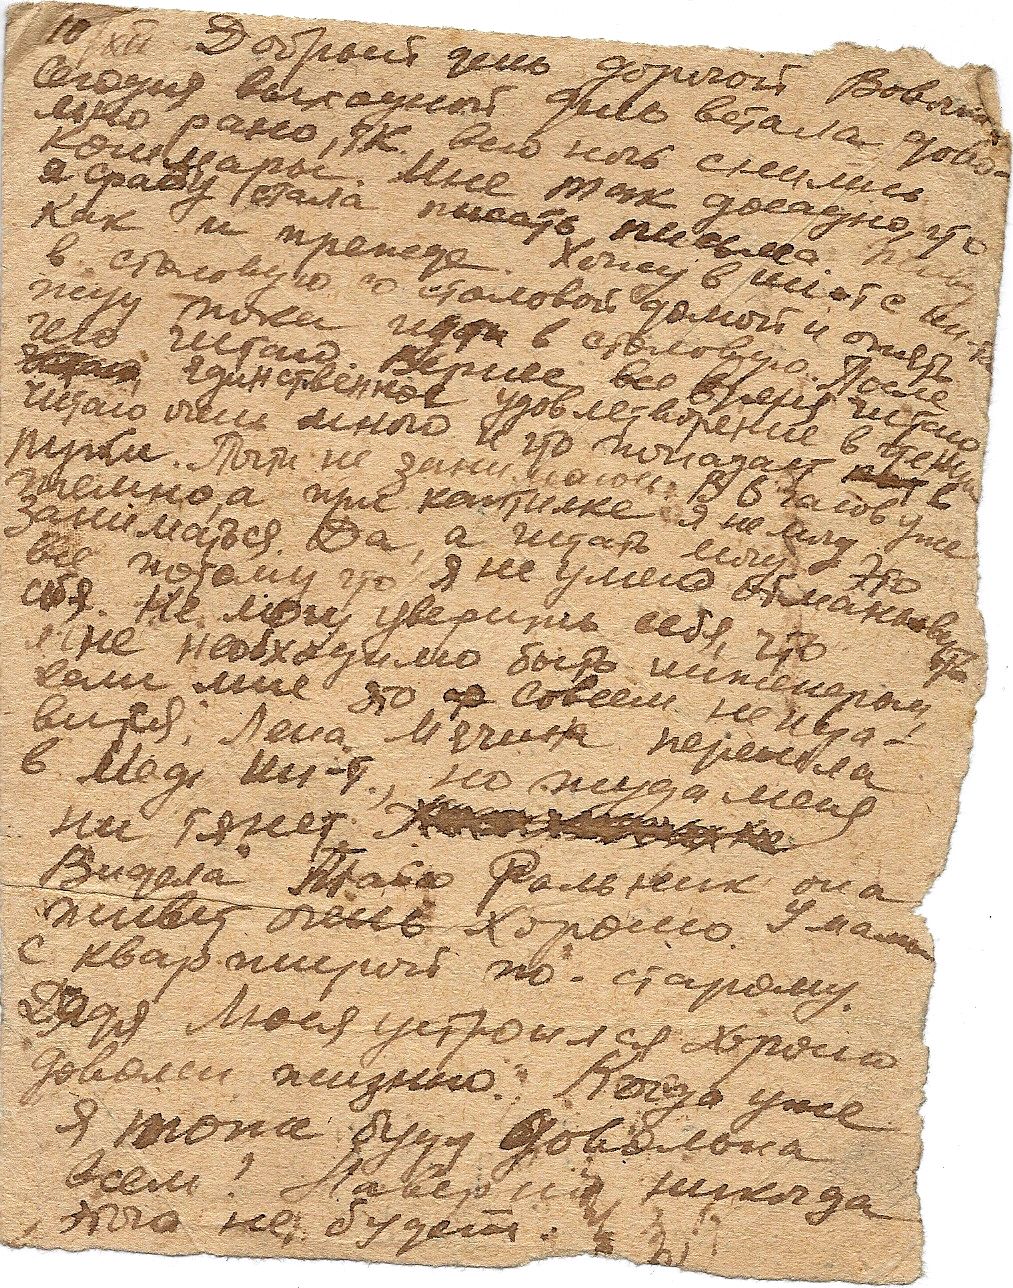 10/XII Добрый день дорогой Вовочка
сегодня выходной день встала дово-
льно рано, т.к. всю ночь снились
кошмары. Мне так досадно, что
я сразу стала писать письмо
как и прежде. Хожу в ин-т с ин-та
в столовую со столовой домой и опять
жду пока идти в столовую. После
чего читаю. Вернее все время читаю
единственное удовлетворение в
читаю очень много и что попадает в
руки. Почти не занимаюсь. В 6 часов уже
темно, а при коптилке я не могу
заниматься. Да, а читать могу. Это
все потому что я не умею обманывать
себя. Не могу уверить себя, что
мне необходимо быть инженером
если мне это совсем не нра-
вится. Лена перешла
в Мед. ин-т, но туда меня
не тянет.
Видела она
живет очень хорошо. У мамы
с квартирой по-старому.
Дядя Люся устроился хорошо
доволен жизнью. Когда уже
я тоже буду довольна
всем! Наверно, никогда
этого не будет.